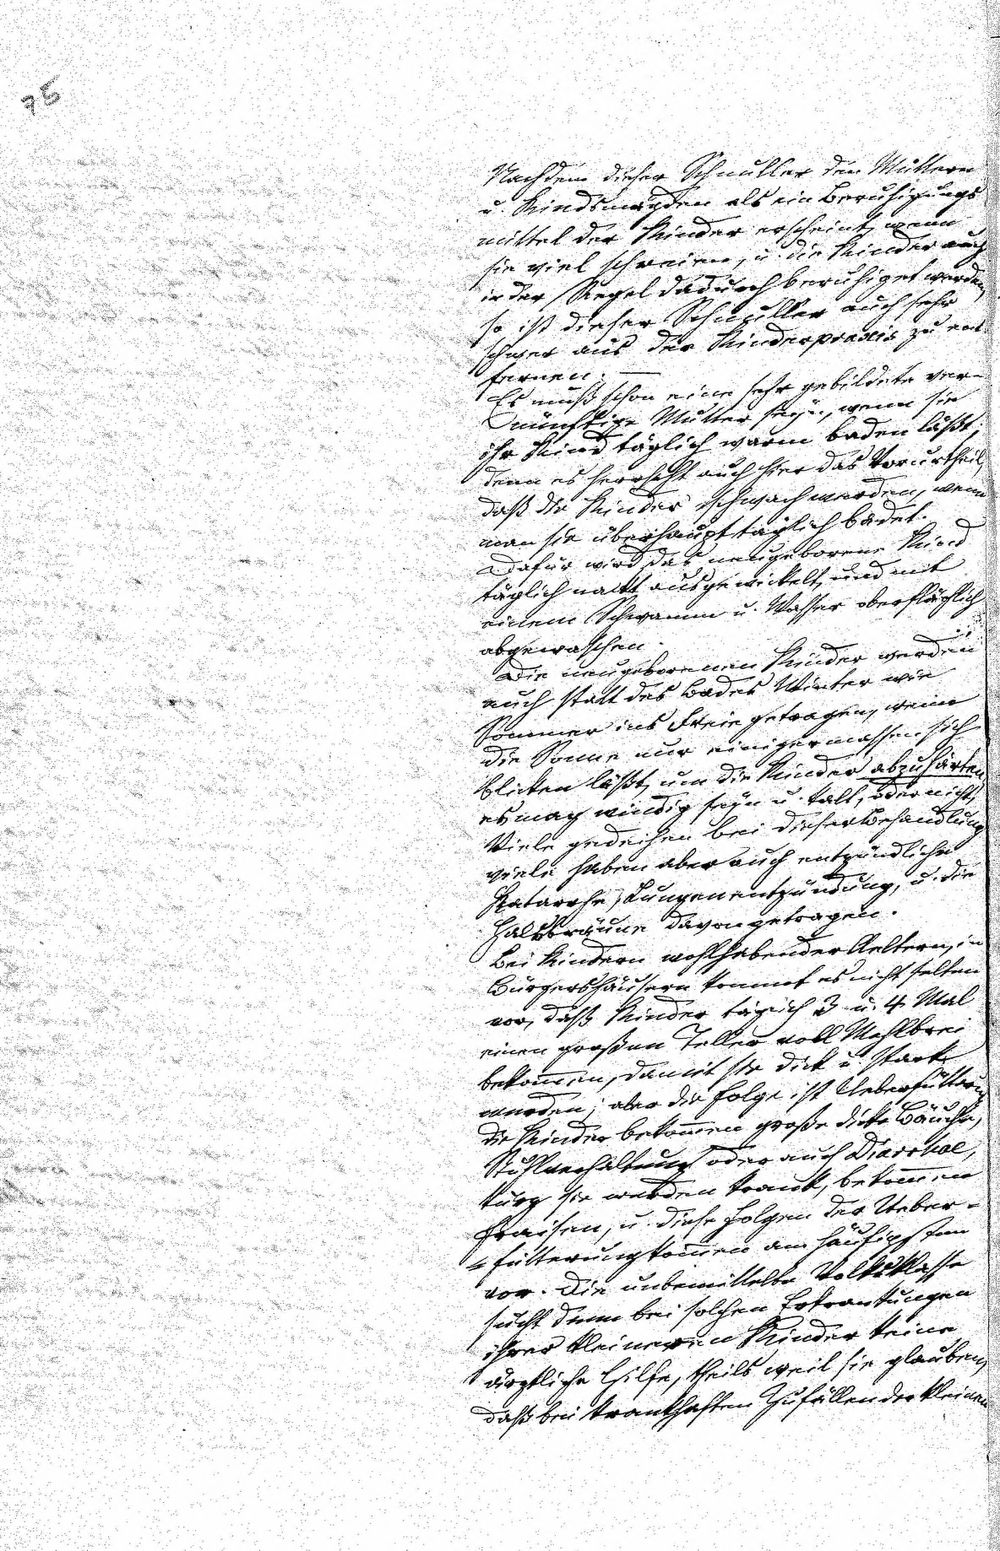 75
Nachdem dieser Schnuller den Müttern
u. Kindsmägden als ein Beruhigungs
mittel der Kinder erscheint, wenn
sie viel schreien, u. die Kinder auch
in der Regel dadurch beruhiget werden,
so ist dieser Schnuller auch sehr
schwer aus der Kinderpraxis zu ent
fernen. —
Es muß schon eine sehr gebildete ver-
nünftige Mutter seyn, wenn sie
ihr Kind täglich warm baden läßt;
denn es herrscht auch hier das Vorurtheil,
daß die Kinder schwach werden, wenn
man sie überhaupt täglich badet.
Dafür wird das neugeborene Kind
täglich nakt ausgewickelt, und mit
einem Schwamm u. Wasser oberflächlich
abgewaschen.
Die neugeborenen Kinder werden
auch statt des Bades Winter wie
Sommer ins Freie getragen, wenn
die Sonne nur einigermassen sich
blicken läßt, um die Kinder abzuhärten,
es mag windig seyn u. kalt, oder nicht,
Viele gedeihen bei dieser Behandlung
viele haben aber auch entzündliche
Katarrhe, Lungenentzündung, u. die
Halsbräune davongetragen.
Bei Kindern wohlhabender Aeltern, in
Bürgershäusern kommt es nicht selten
vor, daß Kinder täglich 3 u. 4 Mal
einen großen Teller voll Mehlbrei
bekom̅en, damit sie dick u. stark
werden; aber die Folge ist Ueberfütterung
die Kinder bekom̅en große dicke Bäuche,
Stuhlverhaltung oder auch Diarrhoe,
kurz sie werden krank, bekom̅en
Fraisen, u. diese Folgen der Ueber-
fütterung kom̅en am häufigsten
vor. Die unbemittelte Volksklasse
sucht denn bei solchen Erkrankungen
ihrer kleineren Kinder keine
ärztliche Hilfe, theils weil sie glauben,
daß bei krankhaften Zufällen der kleinen